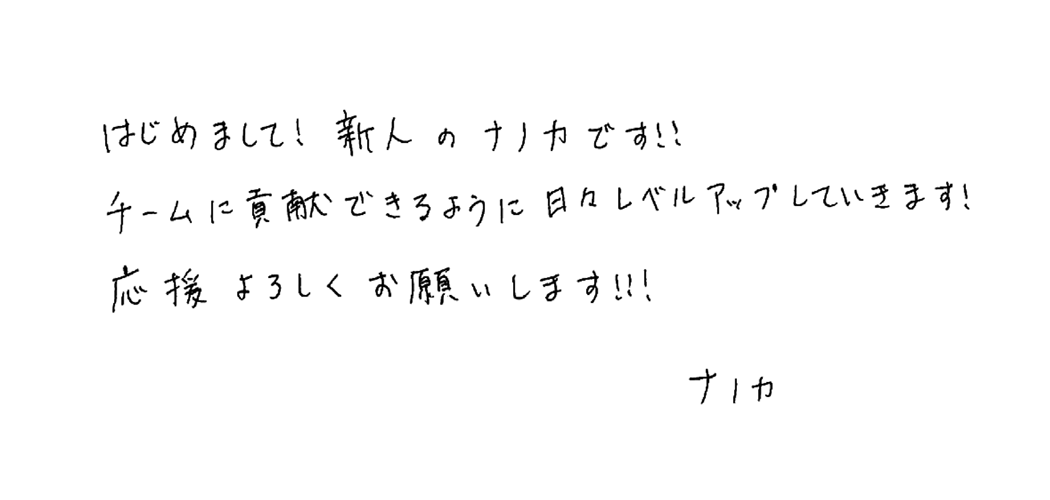 はじめまして! 新人の ナノカです!!
チームに貢献できるように日々レベルアップしていきます!
応援よろしくお願いします!!!
ナノカ